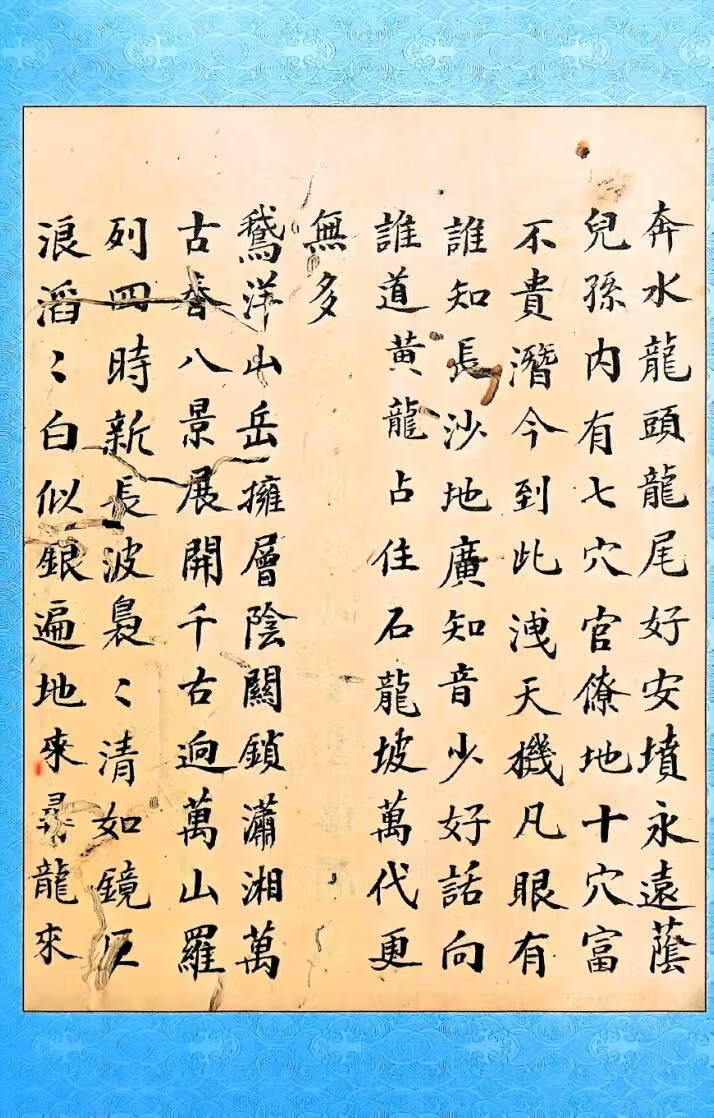 奔水龍頭龍尾好安墳永遠蔭
兒孫内有七穴官僚地十穴富
不貴潛今到此洩天機凡眼有
誰知長沙地廣知音少好話向
誰道黃龍占住石龍坡萬代更
無多
鵞洋山岳擁層陰關鎖瀟湘萬
古春八景展開千古逈萬山羅
列四時新長波裊〻清如鏡巨
浪滔〻白似銀遍地來尋龍來